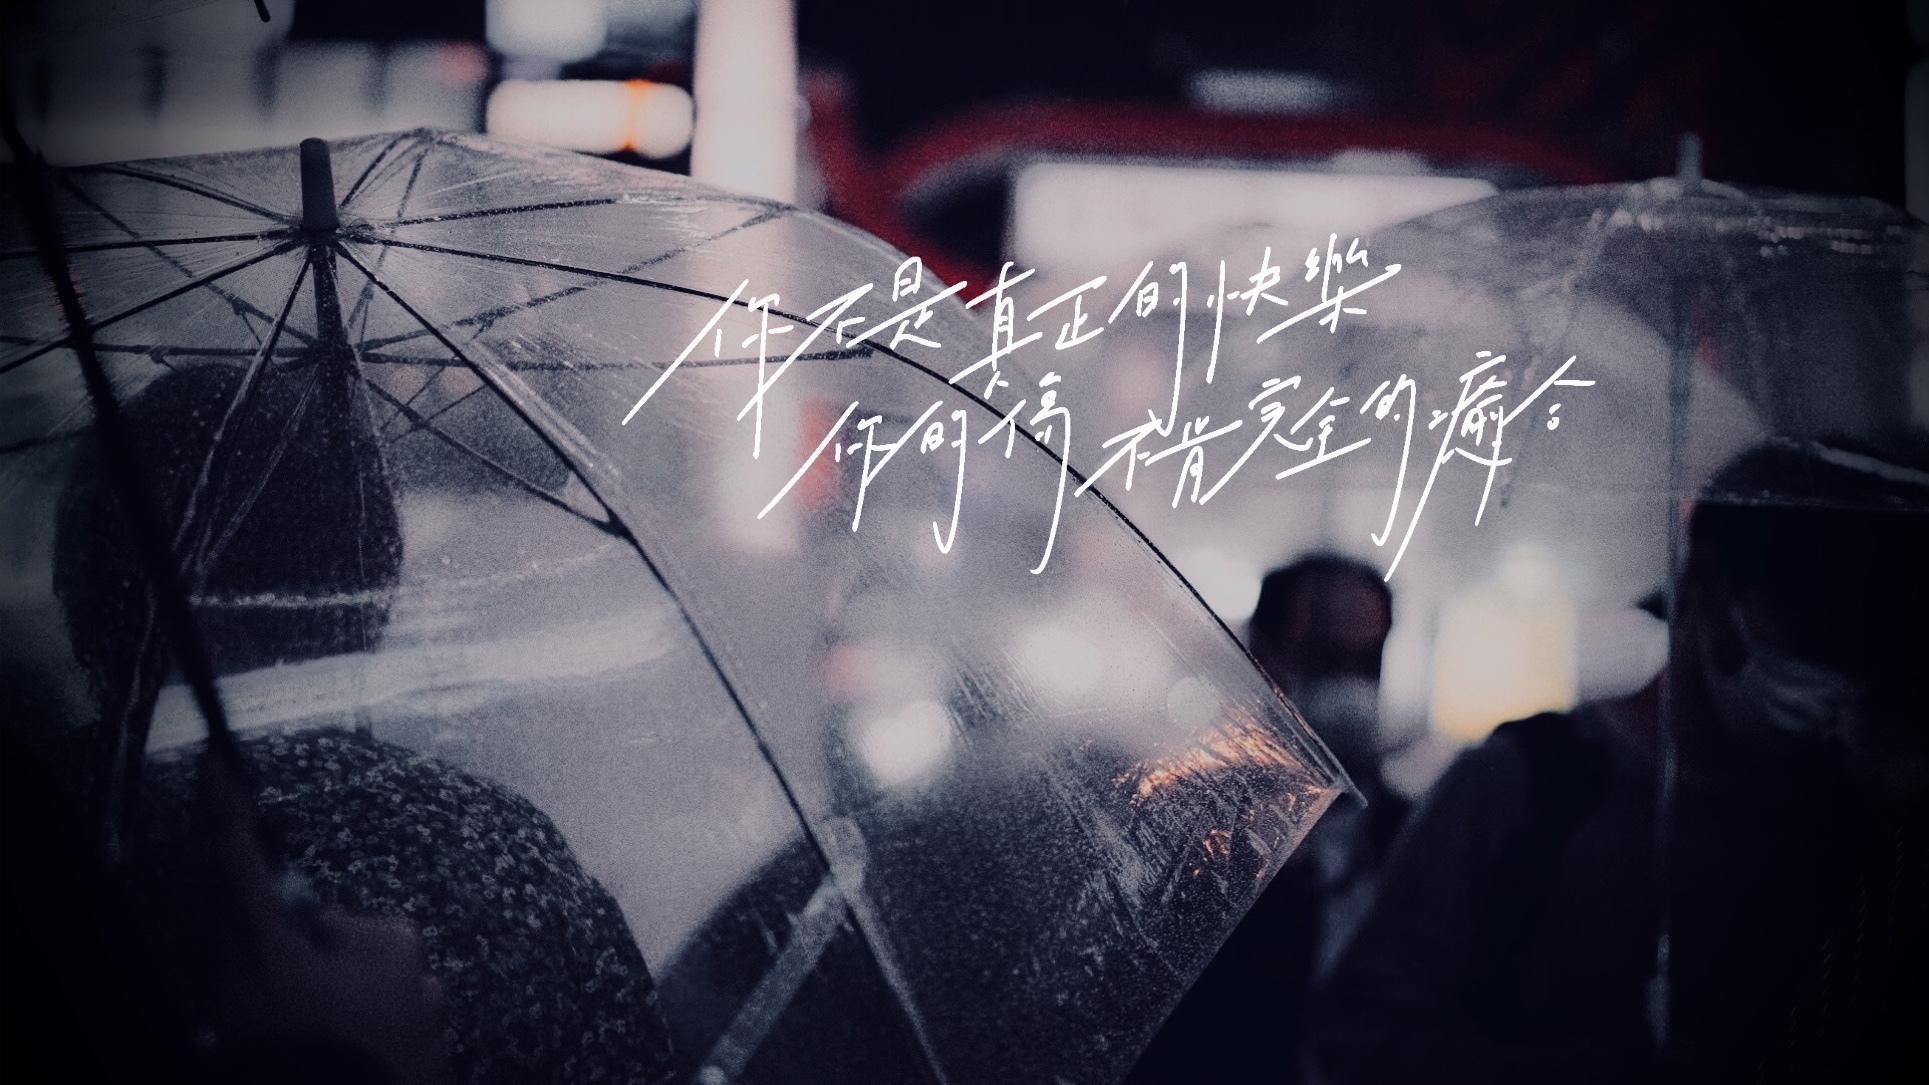 你不是真正的快樂
你的傷不肯完全的癒合